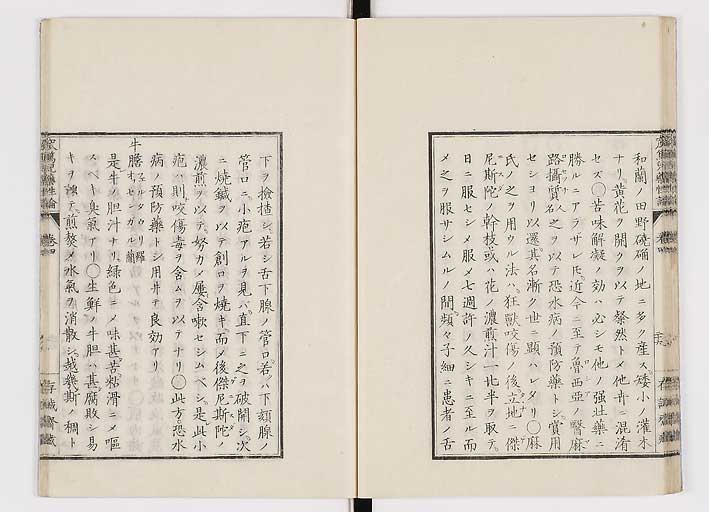 和蘭ノ田野磽确ノ地ニ多ク産ス矮小ノ灌木
ナリ黄花ヲ開クヲ以テ粲然トメ他卉ニ混淆
セズ〇苦味解凝ノ効ハ必シモ他ノ强壮藥ニ
勝ルニアラザレ𪜈近今ニ至テ魯西亜ノ醫麻
路攝質名之ヲ以テ恐水病ノ預防藥トシ實用
セシヨリ以還其名漸ク世ニ顯ハレタリ〇麻
氏ノ之ヲ用ウル法ハ狂獣咬傷ノ後立地ニ傑
尼斯陀ノ幹枝或ハ花ノ濃煎汁一比半ヲ取テ
日ニ服セシメ服メ七週許ノ久シキニ至ル而
メ之ヲ服サシムルノ間頻々子細ニ患者ノ舌
下ヲ撿揸シ若シ舌下腺ノ管口若クハ下頦腺ノ
管口ニ小疱アルヲ見バ直下ニ之ヲ破開シ次
ニ燒鍼ヲ以テ創口ヲ燒キ而メ後傑尼斯陀ノ
濃煎ヲ以テ努カメ屢含嗽セシムベシ是此小
疱ハ則咬傷毒ヲ含ムヲ以テナリ〇此方恐水
病ノ預防藥トシ用井テ良効アリ
牛膽 ヘルタウリ羅 オッセンガル蘭
是牛ノ胆汁ナリ緑色ニメ味甚苦粘滑ニメ嘔
スベキ臭氣アリ〇生鮮ノ牛胆ハ甚腐敗シ易
キヲ以テ煎熬メ水氣ヲ消散シ越幾斯ノ稠ト
卷四
存誠齋藏
卷四
存誠齋藏